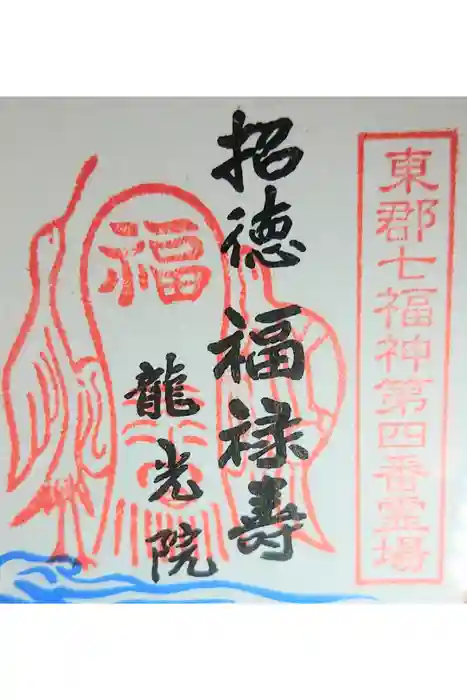 東郡七福神第四番霊場
招徳 福禄壽
龍光院
福